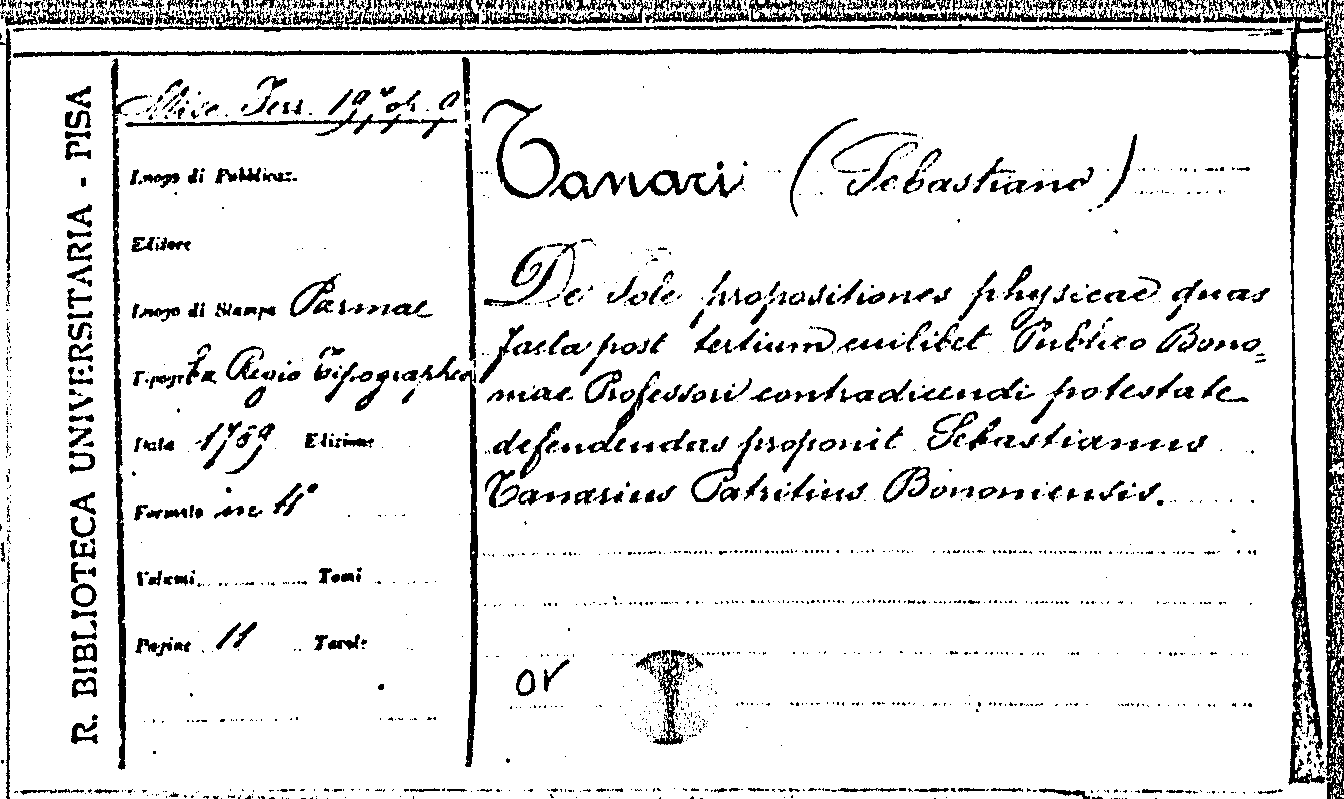 R. BIBLIOTECA UNIVERSITARIA - PISA
Misc. Ferr. 19, op. 9
Luogo di Pubblicaz.
Editore
Luogo di Stampa Parmae
Tipogr. Ex Regio Tipographeo
Data 1789 Edizione
Formato in 4°
Volumi Tomi
Pagine 11 Tavole
Tanari (Sebastiano)
De Sole propositiones physicae quas
facta post tertium cuilibet Publico Bono=
niae Professori contradicendi potestate
defendendas proponit Sebastianus
Tanarius Patritius Bononiensis.
or